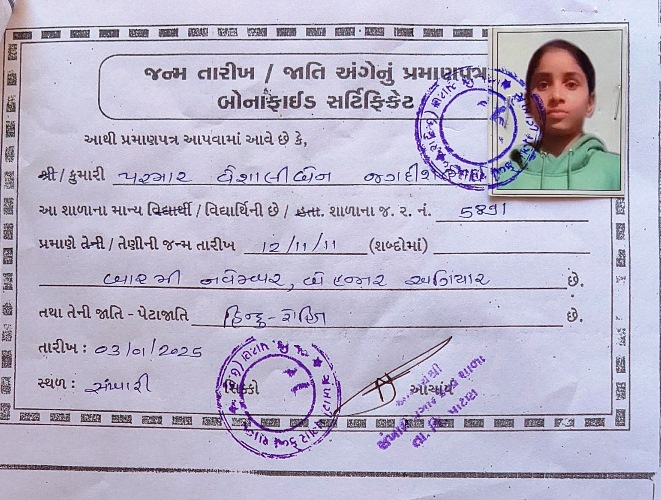 જન્મ તારીખ / જાતિ અંગેનું પ્રમાણપત્ર
બોનાફાઈડ સર્ટિફિકેટ
આથી પ્રમાણપત્ર આપવામાં આવે છે કે,
શ્રી / કુમારી પરમાર વૈશાલીબેન જગદીશ
આ શાળાના માન્ય વિદ્યાર્થી / વિદ્યાર્થિની છે / હતા. શાળાના જ. ર. નં. 5891
પ્રમાણે તેની / તેણીની જન્મ તારીખ 12/11/11 (શબ્દોમાં)
બારમી નવેમ્બર, બે હજાર અગિયાર છે.
તથા તેની જાતિ - પેટાજાતિ હિન્દુ- છે.
તારીખ : 03/01/2025
સ્થળ : સંખારી સિક્કો આચાર્ય